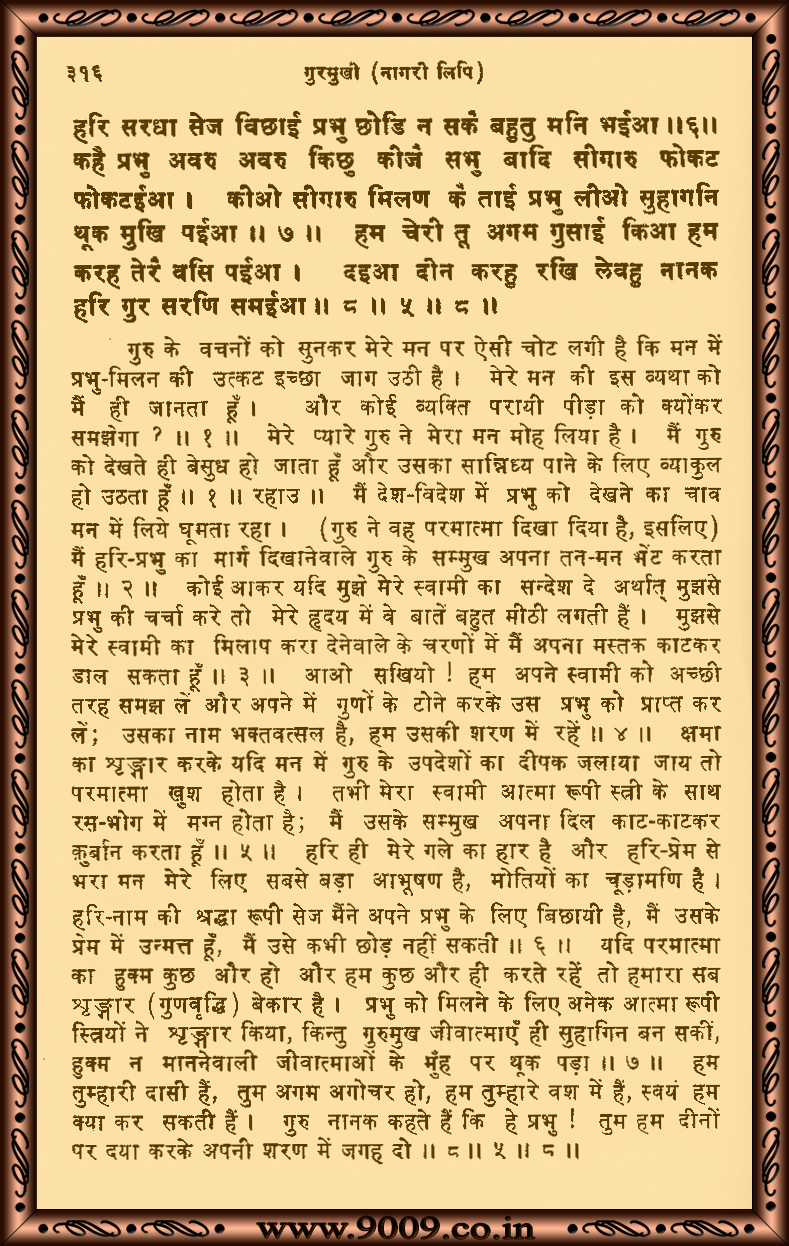 ३१६ गुरमुखी (नागरी लिपि)
हरि सरधा सेज विछाई प्रभु छोडि न सकै बहुतु मनि भईआ ॥६॥
कहै प्रभु अवरु अवरु किछु कीजै सभु बादि सीगारु फोकट
फोकटईआ । कीओ सीगारु मिलण कै ताई प्रभु लीओ सुहागनि
थूक मुखि पईआ ॥ ७ ॥ हम चेरी तू अगम गुसाई किआ हम
करह तेरै वसि पईआ । दइआ दीन करहु रखि लेवहु नानक
हरि गुर सरणि समईआ ॥ ८ ॥ ५ ॥ ८ ॥
गुरु के वचनों को सुनकर मेरे मन पर ऐसी चोट लगी है कि मन में
प्रभु-मिलन की उत्कट इच्छा जाग उठी है । मेरे मन की इस व्यथा को
मैं ही जानता हूँ । और कोई व्यक्ति परायी पीड़ा को क्योंकर
समझेगा ? ॥ १ ॥ मेरे प्यारे गुरु ने मेरा मन मोह लिया है । मैं गुरु
को देखते ही बेसुध हो जाता हूँ और उसका सान्निध्य पाने के लिए व्याकुल
हो उठता हूँ ॥ १ ॥ रहाउ ॥ मैं देश-विदेश में प्रभु को देखने का चाव
मन में लिये घूमता रहा । (गुरु ने वह परमात्मा दिखा दिया है, इसलिए)
मैं हरि-प्रभु का मार्ग दिखानेवाले गुरु के सम्मुख अपना तन-मन भेंट करता
हूँ ॥ २ ॥ कोई आकर यदि मुझे मेरे स्वामी का सन्देश दे अर्थात् मुझसे
प्रभु की चर्चा करे तो मेरे हृदय में वे बातें बहुत मीठी लगती हैं । मुझसे
मेरे स्वामी का मिलाप करा देनेवाले के चरणों में मैं अपना मस्तक काटकर
डाल सकता हूँ ॥ ३ ॥ आओ सखियो ! हम अपने स्वामी को अच्छी
तरह समझ लें और अपने में गुणों के टोने करके उस प्रभु को प्राप्त कर
लें; उसका नाम भक्तवत्सल है, हम उसकी शरण में रहें ॥ ४ ॥ क्षमा
का शृङ्गार करके यदि मन में गुरु के उपदेशों का दीपक जलाया जाय तो
परमात्मा खुश होता है । तभी मेरा स्वामी आत्मा रूपी स्त्री के साथ
रस-भोग में मग्न होता है; मैं उसके सम्मुख अपना दिल काट-काटकर
क़ुर्बान करता हूँ ॥ ५ ॥ हरि ही मेरे गले का हार है और हरि-प्रेम से
भरा मन मेरे लिए सबसे बड़ा आभूषण है, मोतियों का चूड़ामणि है ।
हरि-नाम की श्रद्धा रूपी सेज मैंने अपने प्रभु के लिए बिछायी है, मैं उसके
प्रेम में उन्मत्त हूँ, मैं उसे कभी छोड़ नहीं सकती ॥ ६ ॥ यदि परमात्मा
का हुक्म कुछ और हो और हम कुछ और ही करते रहें तो हमारा सब
शृङ्गार (गुणवृद्धि) बेकार है । प्रभु को मिलने के लिए अनेक आत्मा रूपी
स्त्रियों ने शृङ्गार किया, किन्तु गुरुमुख जीवात्माएँ ही सुहागिन बन सकीं,
हुक्म न माननेवाली जीवात्माओं के मुँह पर थूक पड़ा ॥ ७ ॥ हम
तुम्हारी दासी हैं, तुम अगम अगोचर हो, हम तुम्हारे वश में हैं, स्वयं हम
क्या कर सकती हैं । गुरु नानक कहते हैं कि हे प्रभु ! तुम हम दीनों
पर दया करके अपनी शरण में जगह दो ॥ ८ ॥ ५ ॥ ८ ॥
www.9009.co.in